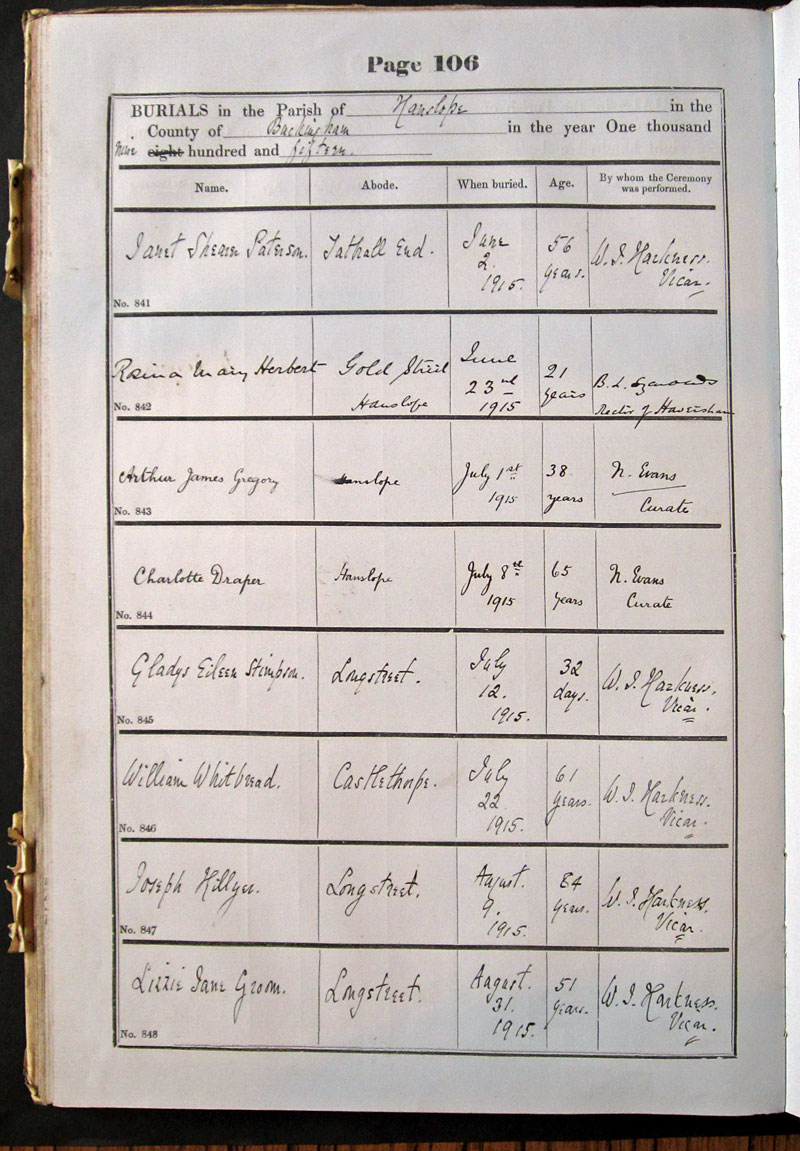 Page 106
BURIALS in the Parish of Hanslope in the
County of Buckingham in the year One thousand
Nine eight hundred and fifteen.
Name. Abode. When buried. Age. By whom the Ceremony was performed.
Janet Shearer Paterson. Tathall End. June 2. 1915. 56 years. W. J. Harkness. Vicar.
No. 841
Rosina Mary Herbert Gold Street Hanslope June 23rd 1915 21 years B. L. Rector of Haversham
No. 842
Arthur James Gregory Hanslope July 1st 1915 38 years N. Evans Curate
No. 843
Charlotte Draper Hanslope July 8th 1915 65 years N. Evans Curate
No. 844
Gladys Eileen Stimpson. Longstreet. July 12. 1915. 32 days. W. J. Harkness. Vicar.
No. 845
William Whitbread. Castlethorpe. July 22 1915. 61 years. W. J. Harkness. Vicar.
No. 846
Joseph Hillyer. Longstreet. August. 9. 1915. 84 years. W. J. Harkness. Vicar.
No. 847
Lizzie Jane Groom. Longstreet. August 31. 1915. 51 years. W. J. Harkness. Vicar.
No. 848